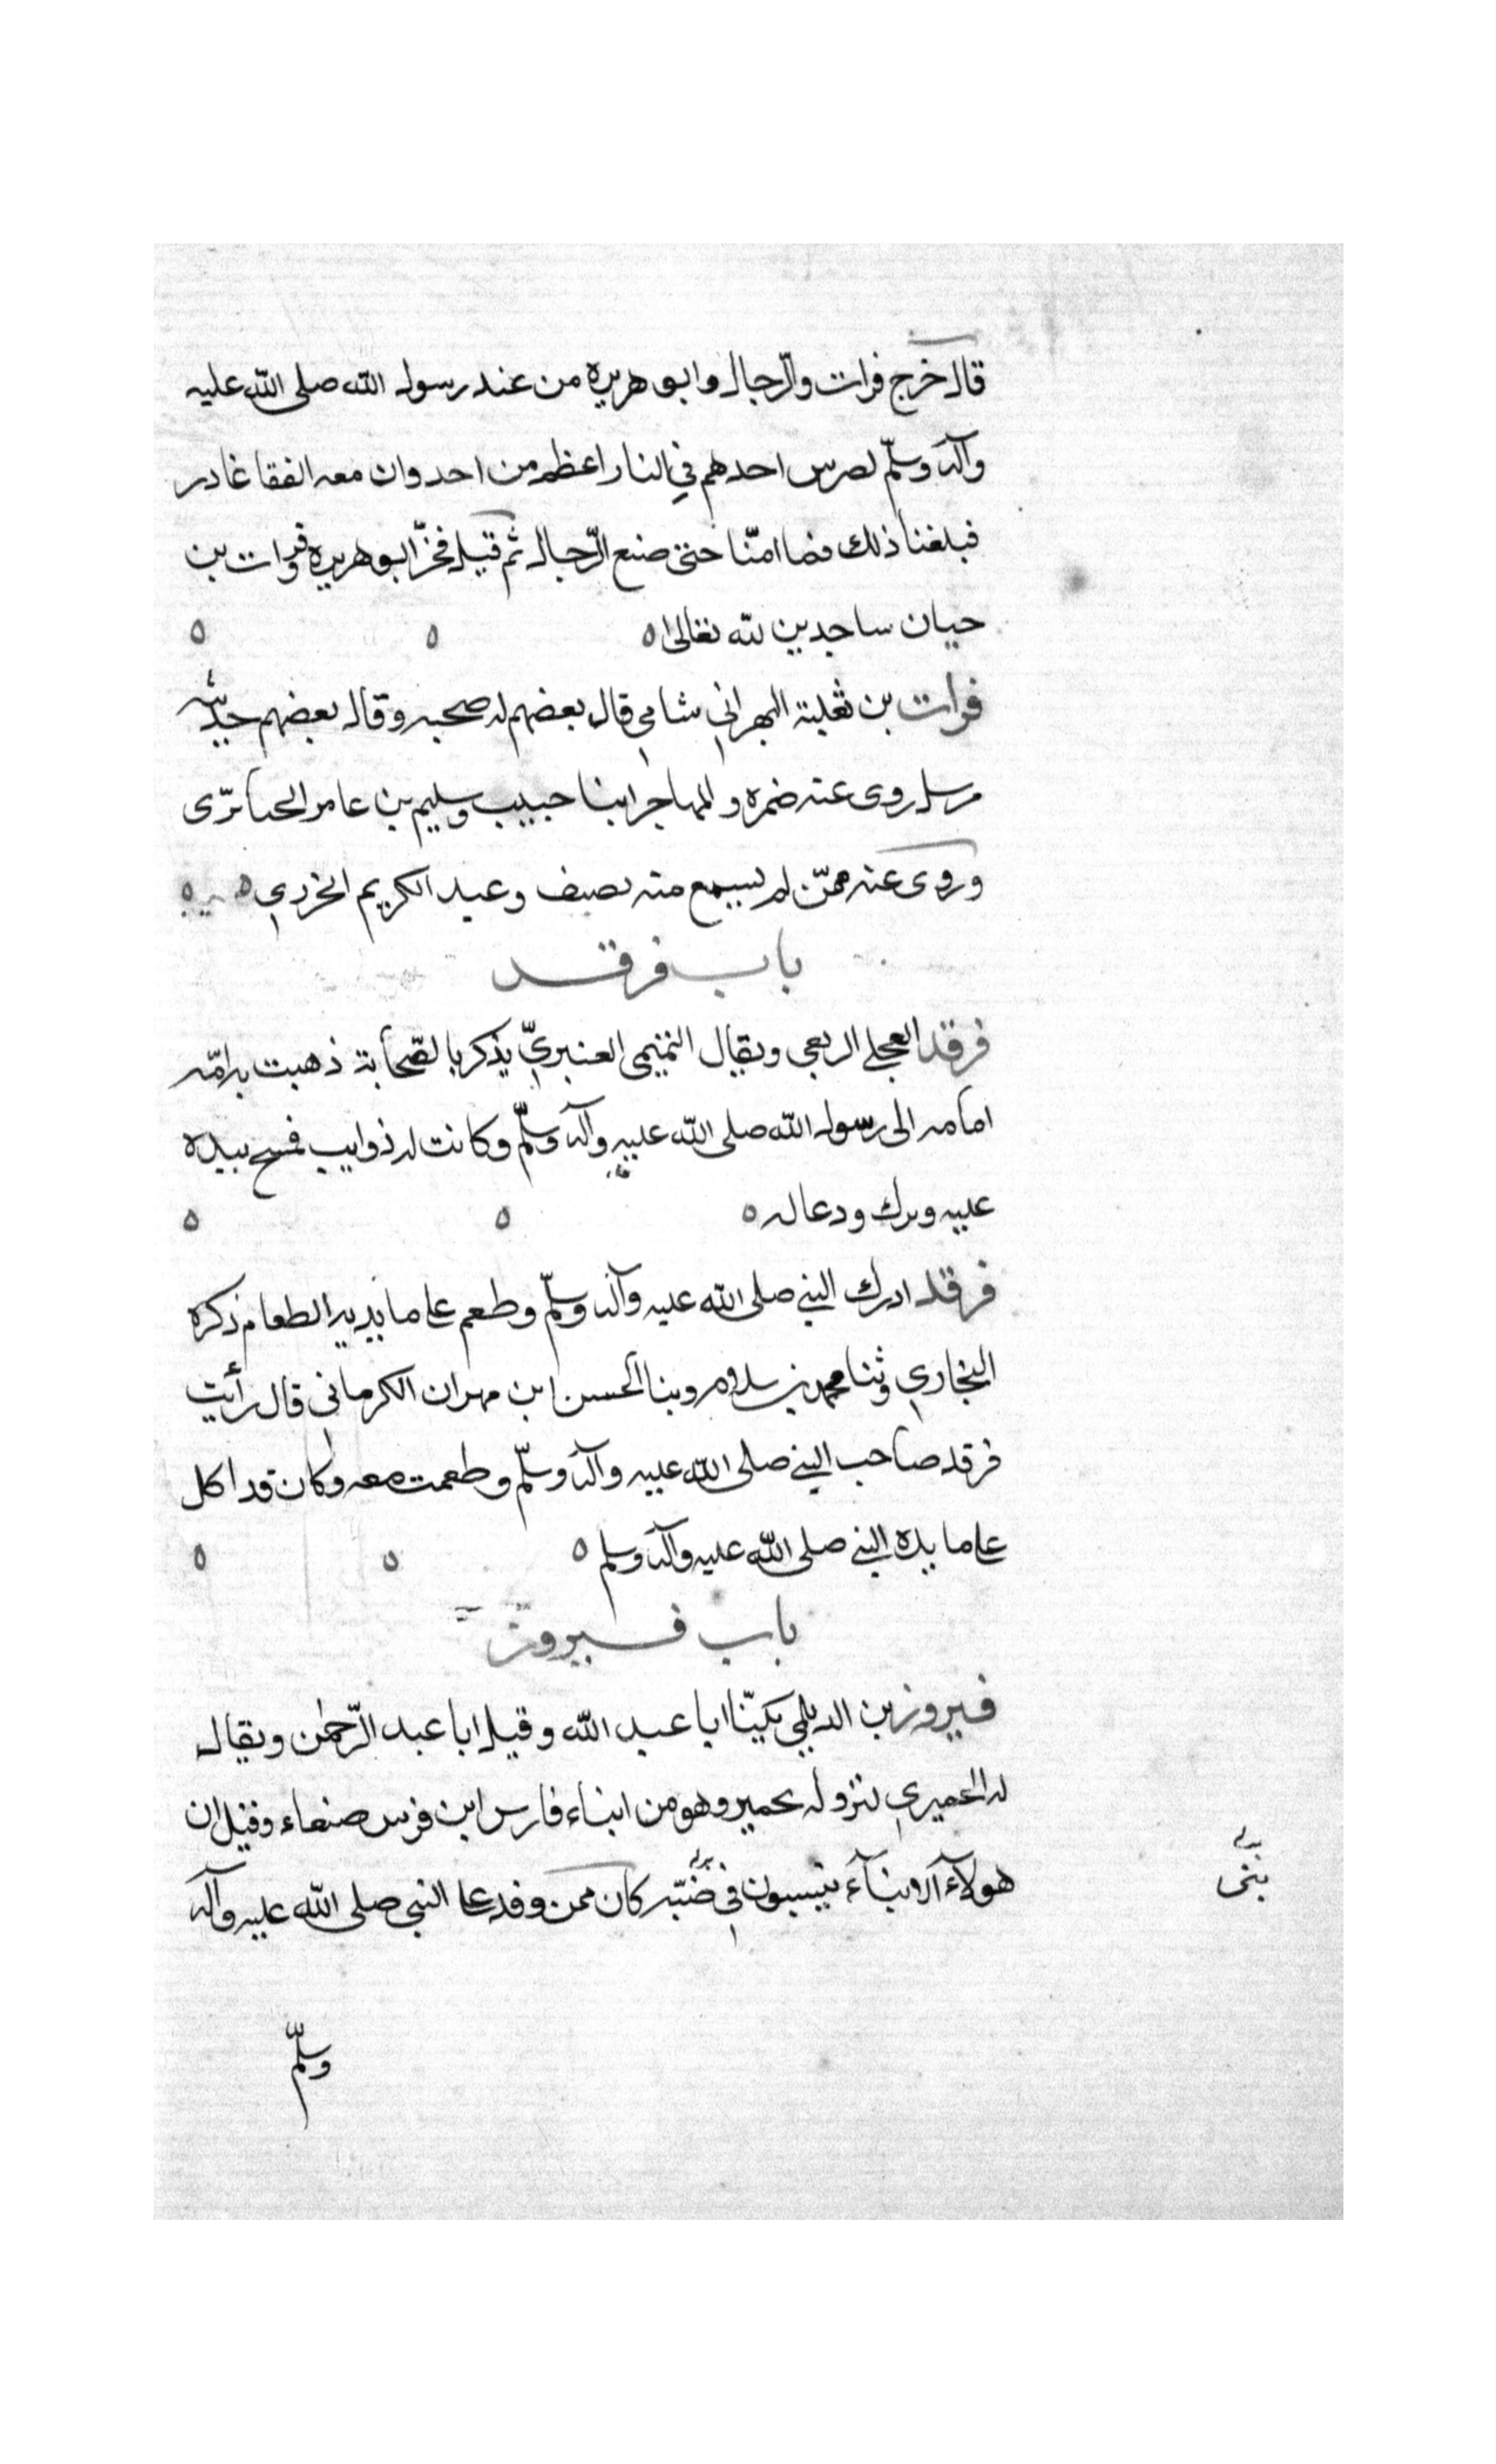 قال خرج فرات والرّجال وابو هريره من عند رسول الله صلى الله عليه
وآله وسلّم لضرس احدهم في النار اعظم من احد وان معه لقفا غادر
فبلغنا ذلك فما امنّا حتى صنع الرّجال ثم قتيل فخرّ ابو هريره وفرات بن
حيان ساجدين لله تعالى ٥ ٥ ٥
فرات بن ثعلبة البهراني شامي قال بعضهم له صحبه وقال بعضهم حديثه
مرسل روى عنه ضمره والمهاجر ابنا حبيب وسليم بن عامر الحبائرى
وروى عنه ممّن لم يسمع منه نصيف وعبد الكريم الخزري ٥
باب فرقد
فرقد العجلي الربعي ويقال التميمى العنبريّ يذكر بالصّحابة ذهبت به امّه
امامه الى رسول الله صلى الله عليه وآله وسلّم وكانت له ذوايب فمسح بيده
عليه وبرك ودعا له ٥ ٥ ٥
فرقد ادرك النبي صلى الله عليه وآله وسلّم وطعم على مايديه الطعام ذكره
البخاري وثنا محمد بن سلام وبنا الحسن ابن مهران الكرماني قال رأيت
فرقد صاحب النبي صلى الله عليه وآله وسلّم وطعمت معه وكان قد اكل
على مايده النبي صلى الله عليه وآله وسلم ٥ ٥ ٥
باب فيروز
فيروز بن الديلمي يكنّا ابا عبد الله وقيل ابا عبد الرّحمن ويقال
له الحميري لنزوله بحمير وهو من ابناء فارس ابن فرس صنعاء وقيل ان
هولآء الابنآء ينسبون في ضبّه كان ممن وفد على النبي صلى الله عليه وآله
بنى
وسلّم